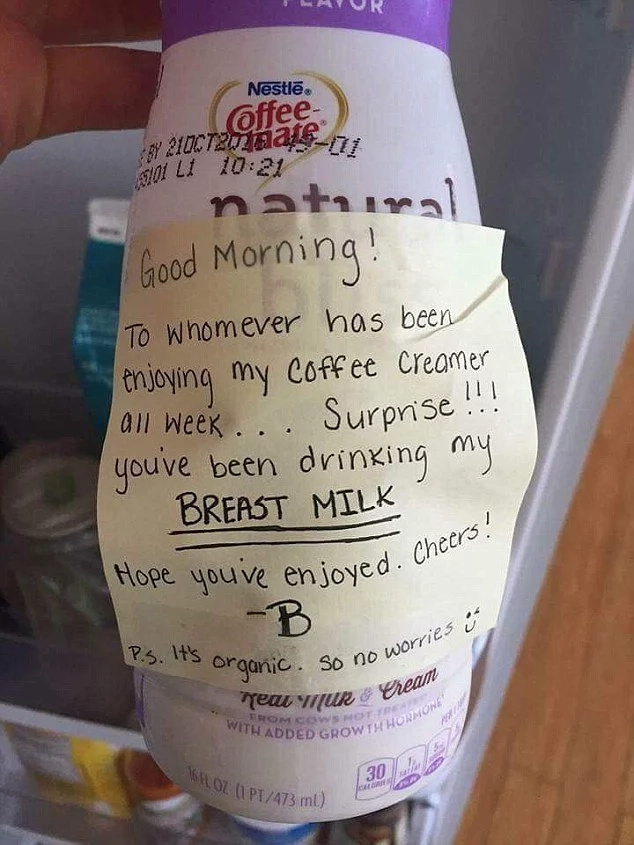 FLAVOR
Nestlé®
Coffee-
mate®
BY 21OCT2016 45-01
L1 10:21
natural
Good Morning!
To whomever has been
enjoying my coffee creamer
all week . . . Surprise!!!
you've been drinking my
BREAST MILK
Hope you've enjoyed. Cheers!
-B
P.s. It's organic. So no worries
Real Milk & Cream
FROM COWS NOT TREATED
WITH ADDED GROWTH HORMONE
16 FL OZ (1 PT/473 mL)
30
CALORIES